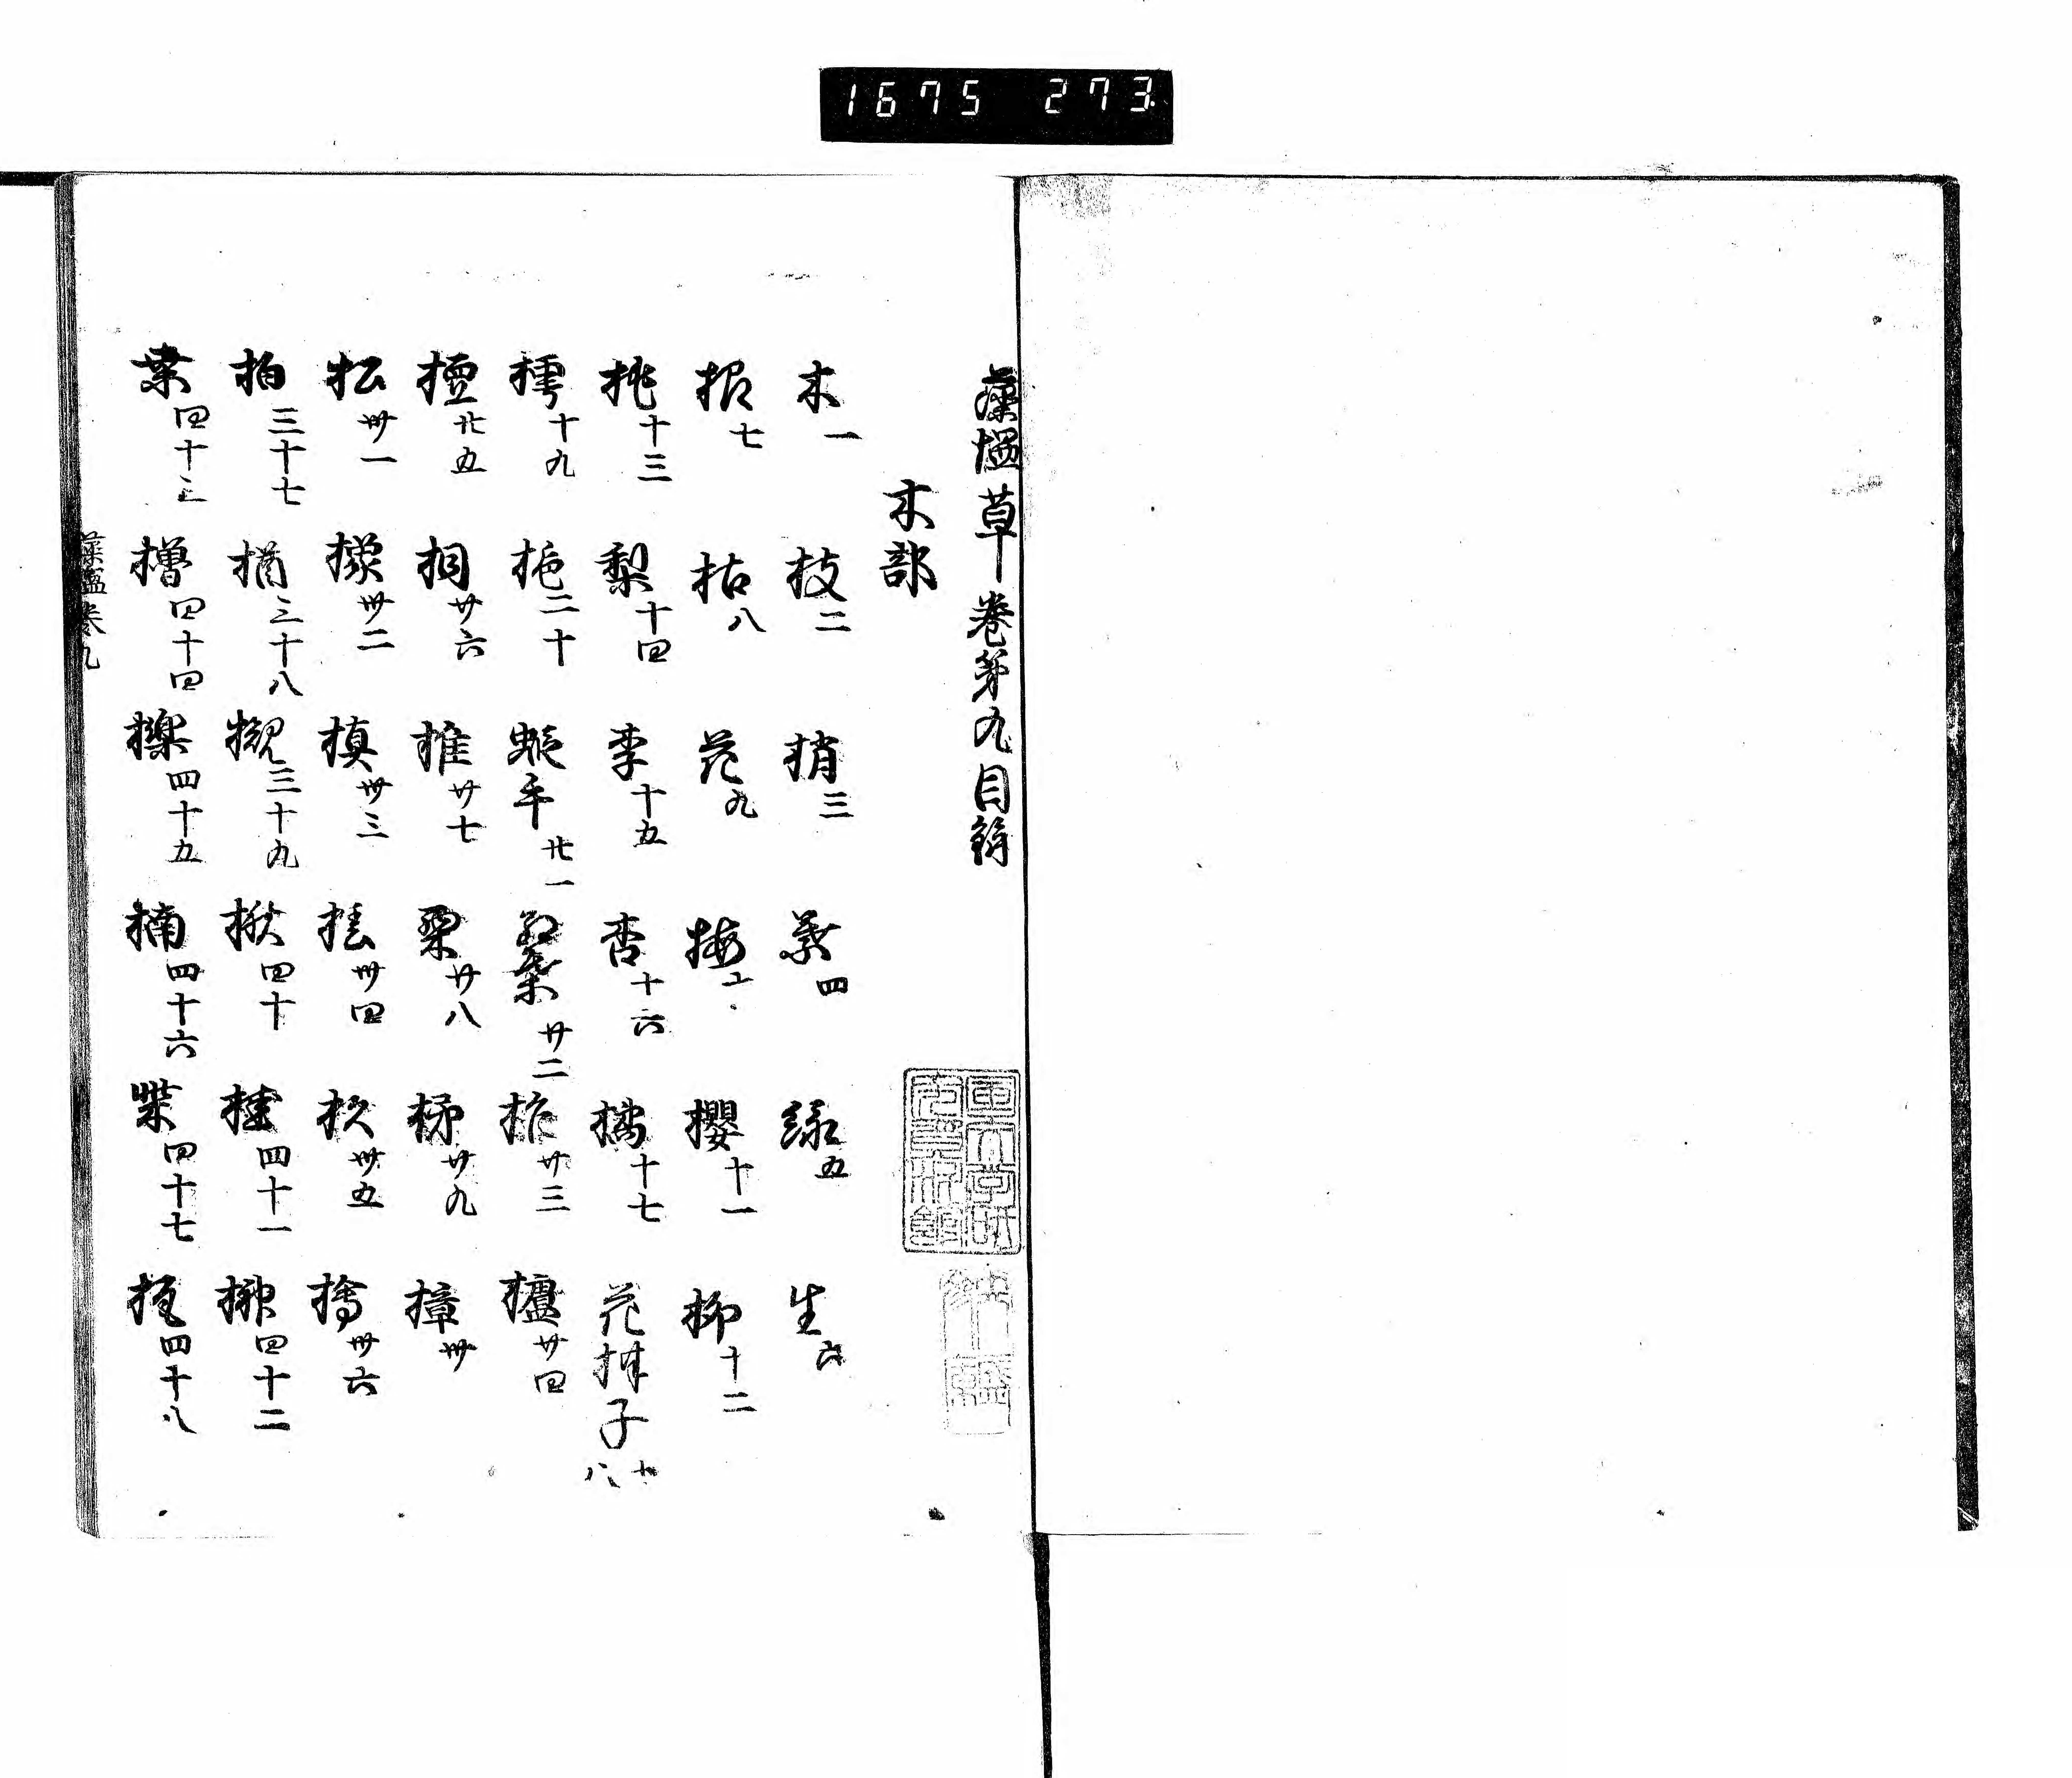 1675 273
藻塩草巻第九目録
木部
木一 枝二 梢三 葉四 緑五 生六
根七 枯八 花九 梅十 櫻十一 柳十二
桃十三 梨十四 李十五 杏十六 橘十七 花柑子十八
樗十九 梔二十 蝦手廿一 紅葉廿二 柞廿三 櫨廿四
檀廿五 桐廿六 椎廿七 栗廿八 柿廿九 樟卅
松卅一 橡卅二 槙卅三 卅四 杉卅五 檜卅六
柏三十七 楢三十八 三十九 楸四十 桂四十一 榊四十二
桑四十三 四十四 櫟四十五 楠四十六 柴四十七 四十八
藻塩巻九